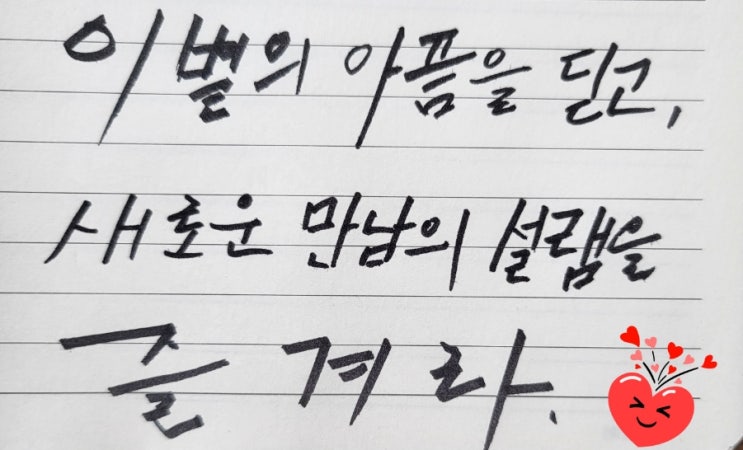 이별의 아픔을 딛고,
새로운 만남의 설램을
즐겨라.